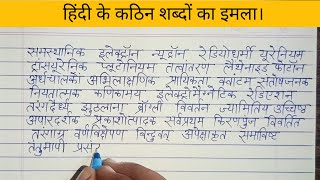 हिंदी के कठिन शब्दों का इमला।
समस्थानिक इलेक्ट्रॉन न्यूट्रॉन रेडियोधर्मी यूरेनियम
ट्रांसयूरेनिक प्लूटोनियम तत्वांतरण लैंथेनाइड फोटॉन
अर्धचालकों अभिलाक्षणिक प्रायिकता क्वांटम संतोषजनक
नियतात्मक कणिकामय इलेक्ट्रोमैग्नेटिक रेडिएशन
तरंगदैर्ध्य झुठलाना ब्रॉग्ली विवर्तन ज्यामितीय उच्चिष्ठ
अपारदर्शक प्रकाशोत्पादक सर्वप्रथम किरणपुंज विवर्तित
तरंगाग्र वर्णविक्षेपण बिन्दुवत् अपेक्षाकृत समाविष्ट
तनुमापी